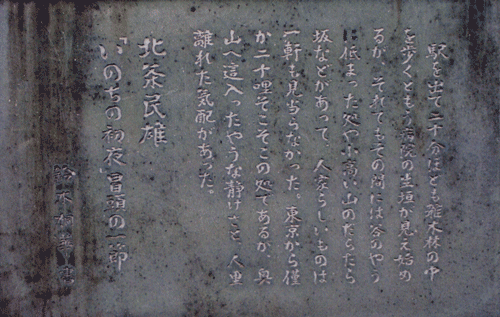 駅を出て二十分ほども雑木林の中
を歩くともう病院の生垣が見え始め
るが、それでもその間には谷のやう
に低まった処や小高い山のだらだら
坂などがあって、人家らしいものは
一軒も見当らなかった。東京から僅
か二十哩そこそこの処であるが、奥
山へ這入ったやうな静けさと、人里
離れた気配があった。
北条民雄
「いのちの初夜」冒頭の一節